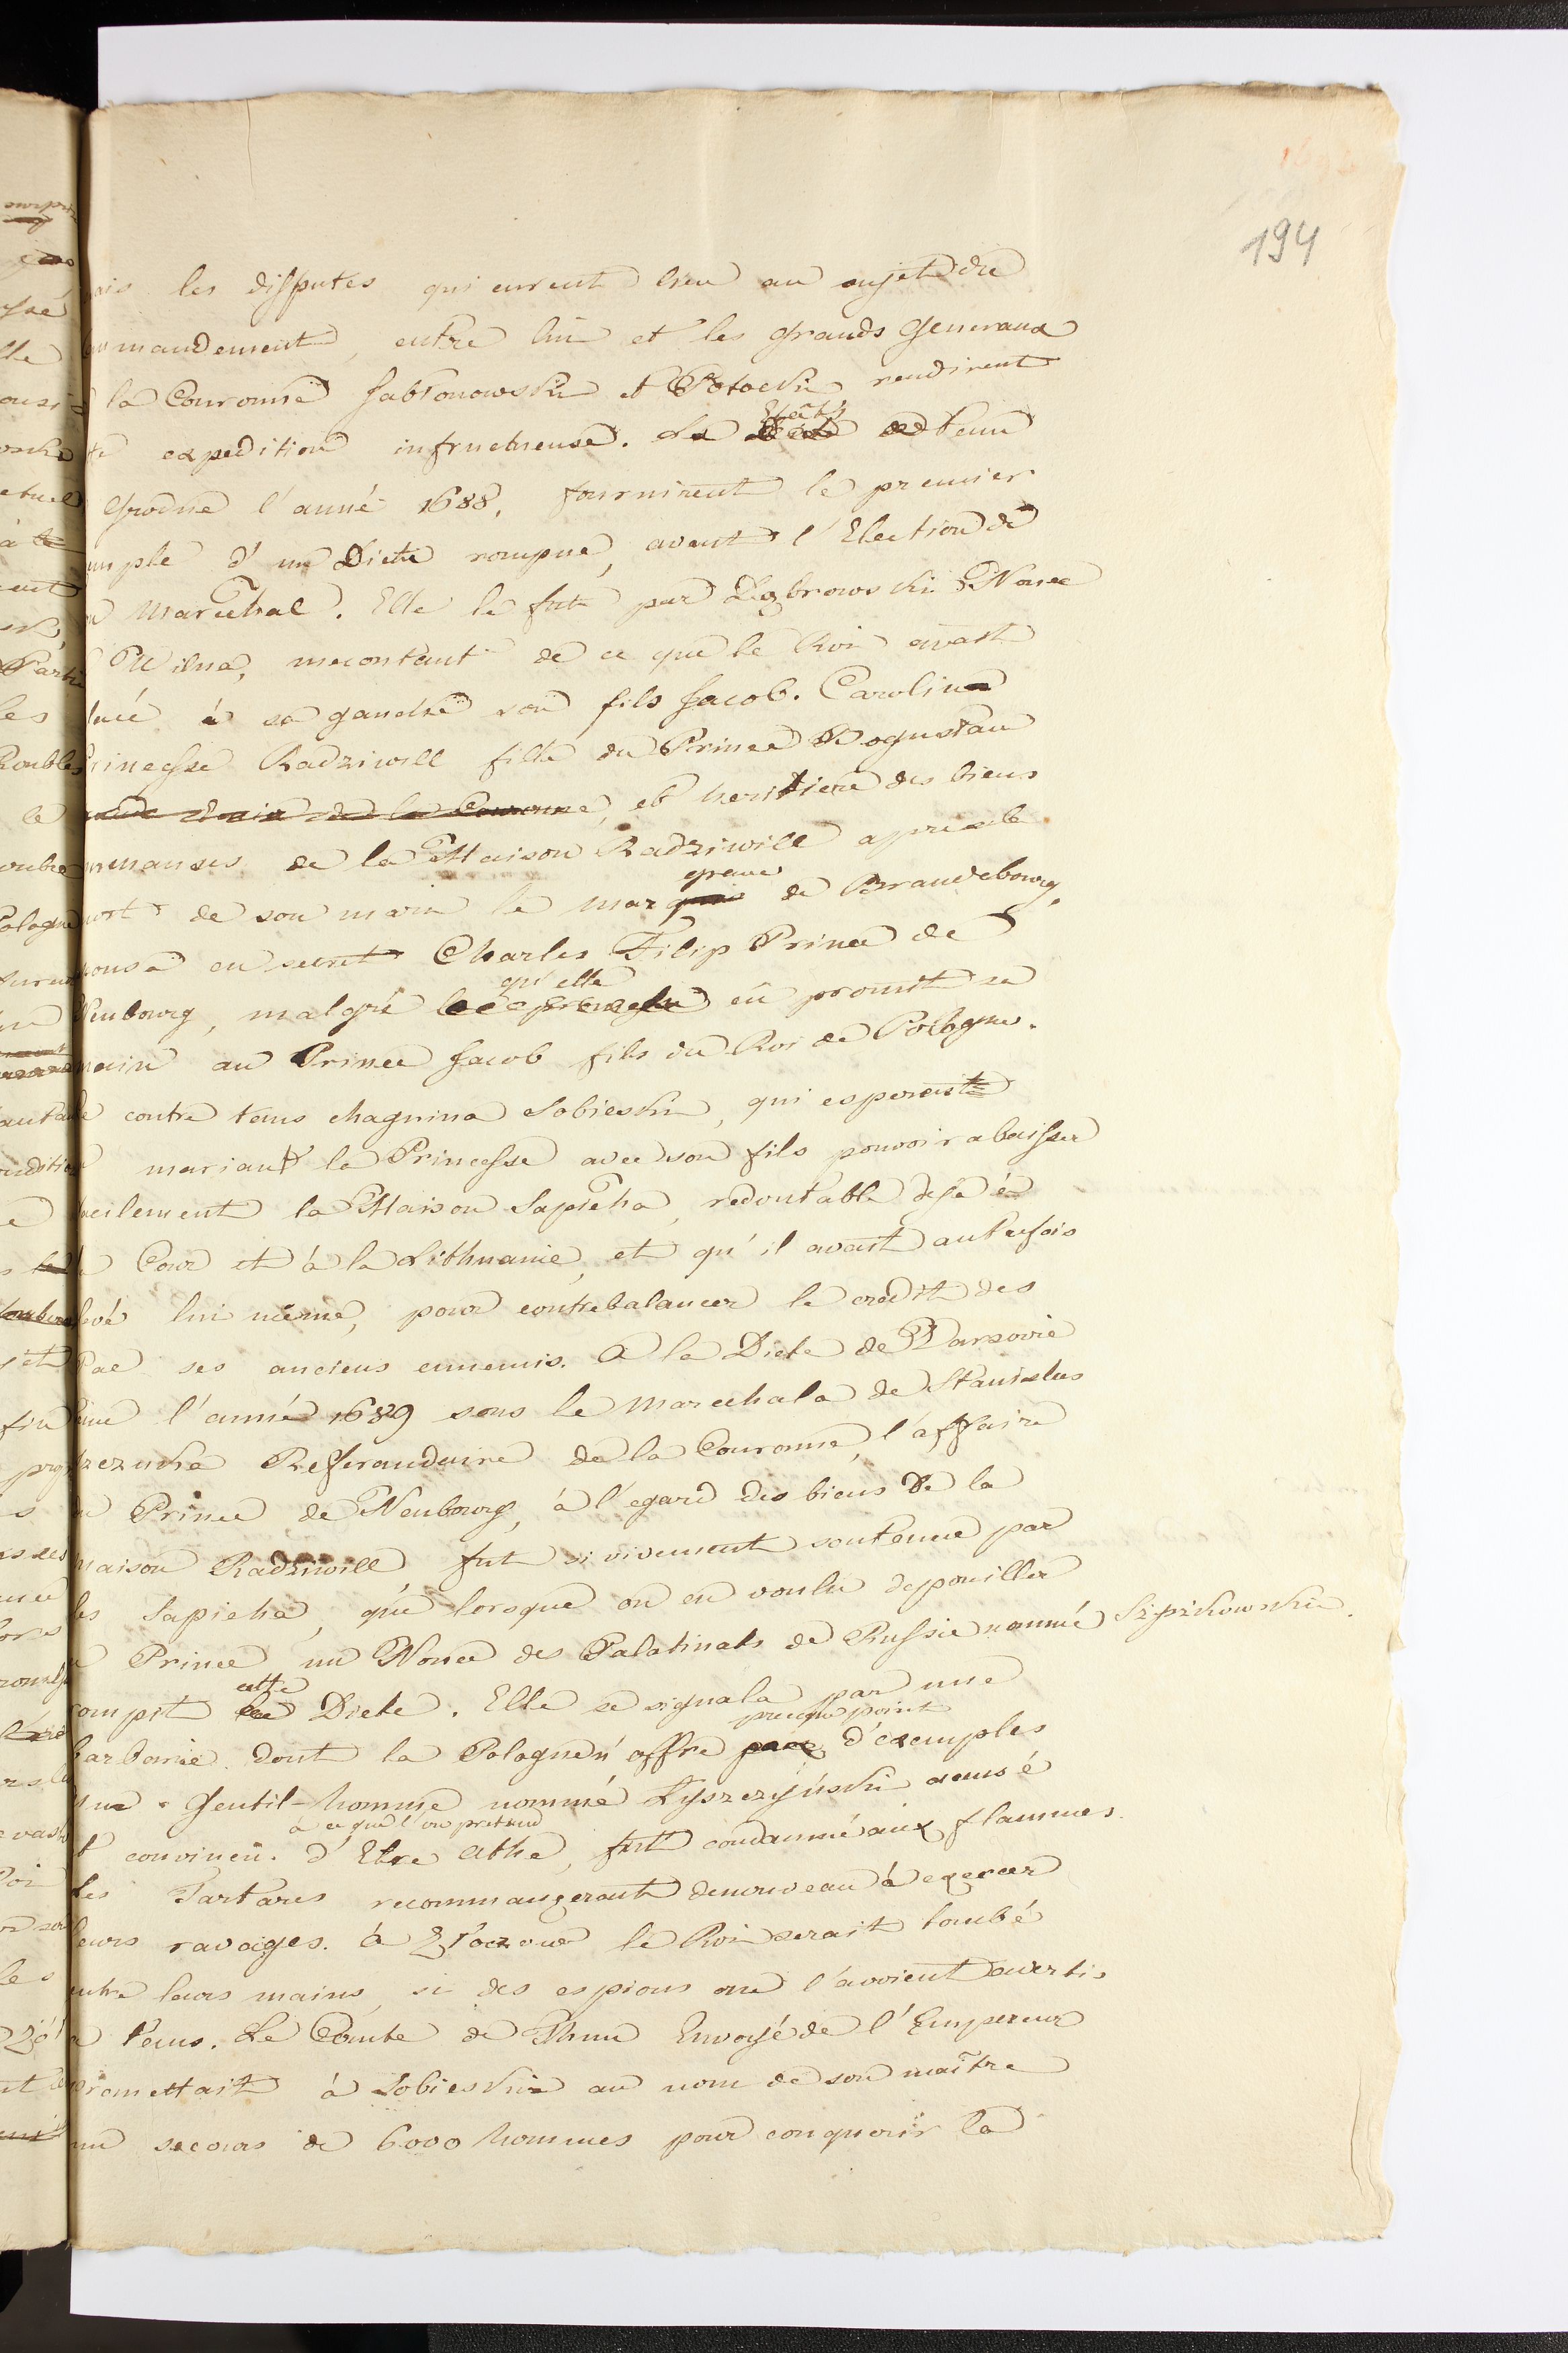 194
ais les disputes qui eurent lieu au sujet du
mandement, entre lui et les grands Generaux
la Couronne Jabłonowski et Potocki rendirent
te expedition infructueuse. La Etats tenu
Grodne l'année 1688, fournirent le premier
mple d'un Diete rompue, avant l'Election de
n Marechal. Elle le fut par Dąbrowski Nonce
Wilna, mecontant de ce que le Roi avait
lacé à sa gauche son fils Jacob. Carolina
rincesse Radziwill fille du Prince Bogusłau
et heritiere des biens
menauses de la Maison Radziwill apres la
ort de son marie le margrave de Brandebourg,
pousa en secret Charles Filip Prince de
Neubourg, malgré qu'elle eû promit sa
main au Prince Jacob fils du Roi de Pologne.
e contre tems chagrina Sobieski, qui esperait
mariant la Princesse avec son fils pouvoir abaisser
acilement la Maison Sapieha, redoutable deja à
a Cour et à la Lithuanie, et qu'il avait autrefois
levé lui même, pour contrebalancer le credit des
Pac ses anciens ennemis. A la Diete de Varsovie
enue l'année 1689 sous le Marechala de Stanislas
zczuka Referandaire de la Couronne, l'affaire
u Prince de Neubourg, à l'egard des biens de la
maison Radziwill fut si vivement soutenue par
les Sapieha, que lorsque on en voulu depouiller
e Prince un Nonce des Palatinats de Russie nommé Szpikowski.
rompit cette Diete. Elle se signala par une
barbarie dont la Pologne n'offre presque point d'exemples
un Gentil-homme nommé Łyszczyński acusé
t convincu à ce que l'on pretend d'Etre athe, fut condamné aux flammes.
les Tartares recommangerant denouveau à exercer
leurs ravages. à Złoczow le Roi serait tombé
entre leurs mains, si des espions ne l'avoient avertis
a tems. Le Comte de Thun Envoyé de l'Empereur
promettait à Sobieski au nom de son maître
un secours de 6000 hommes pour conquerir la